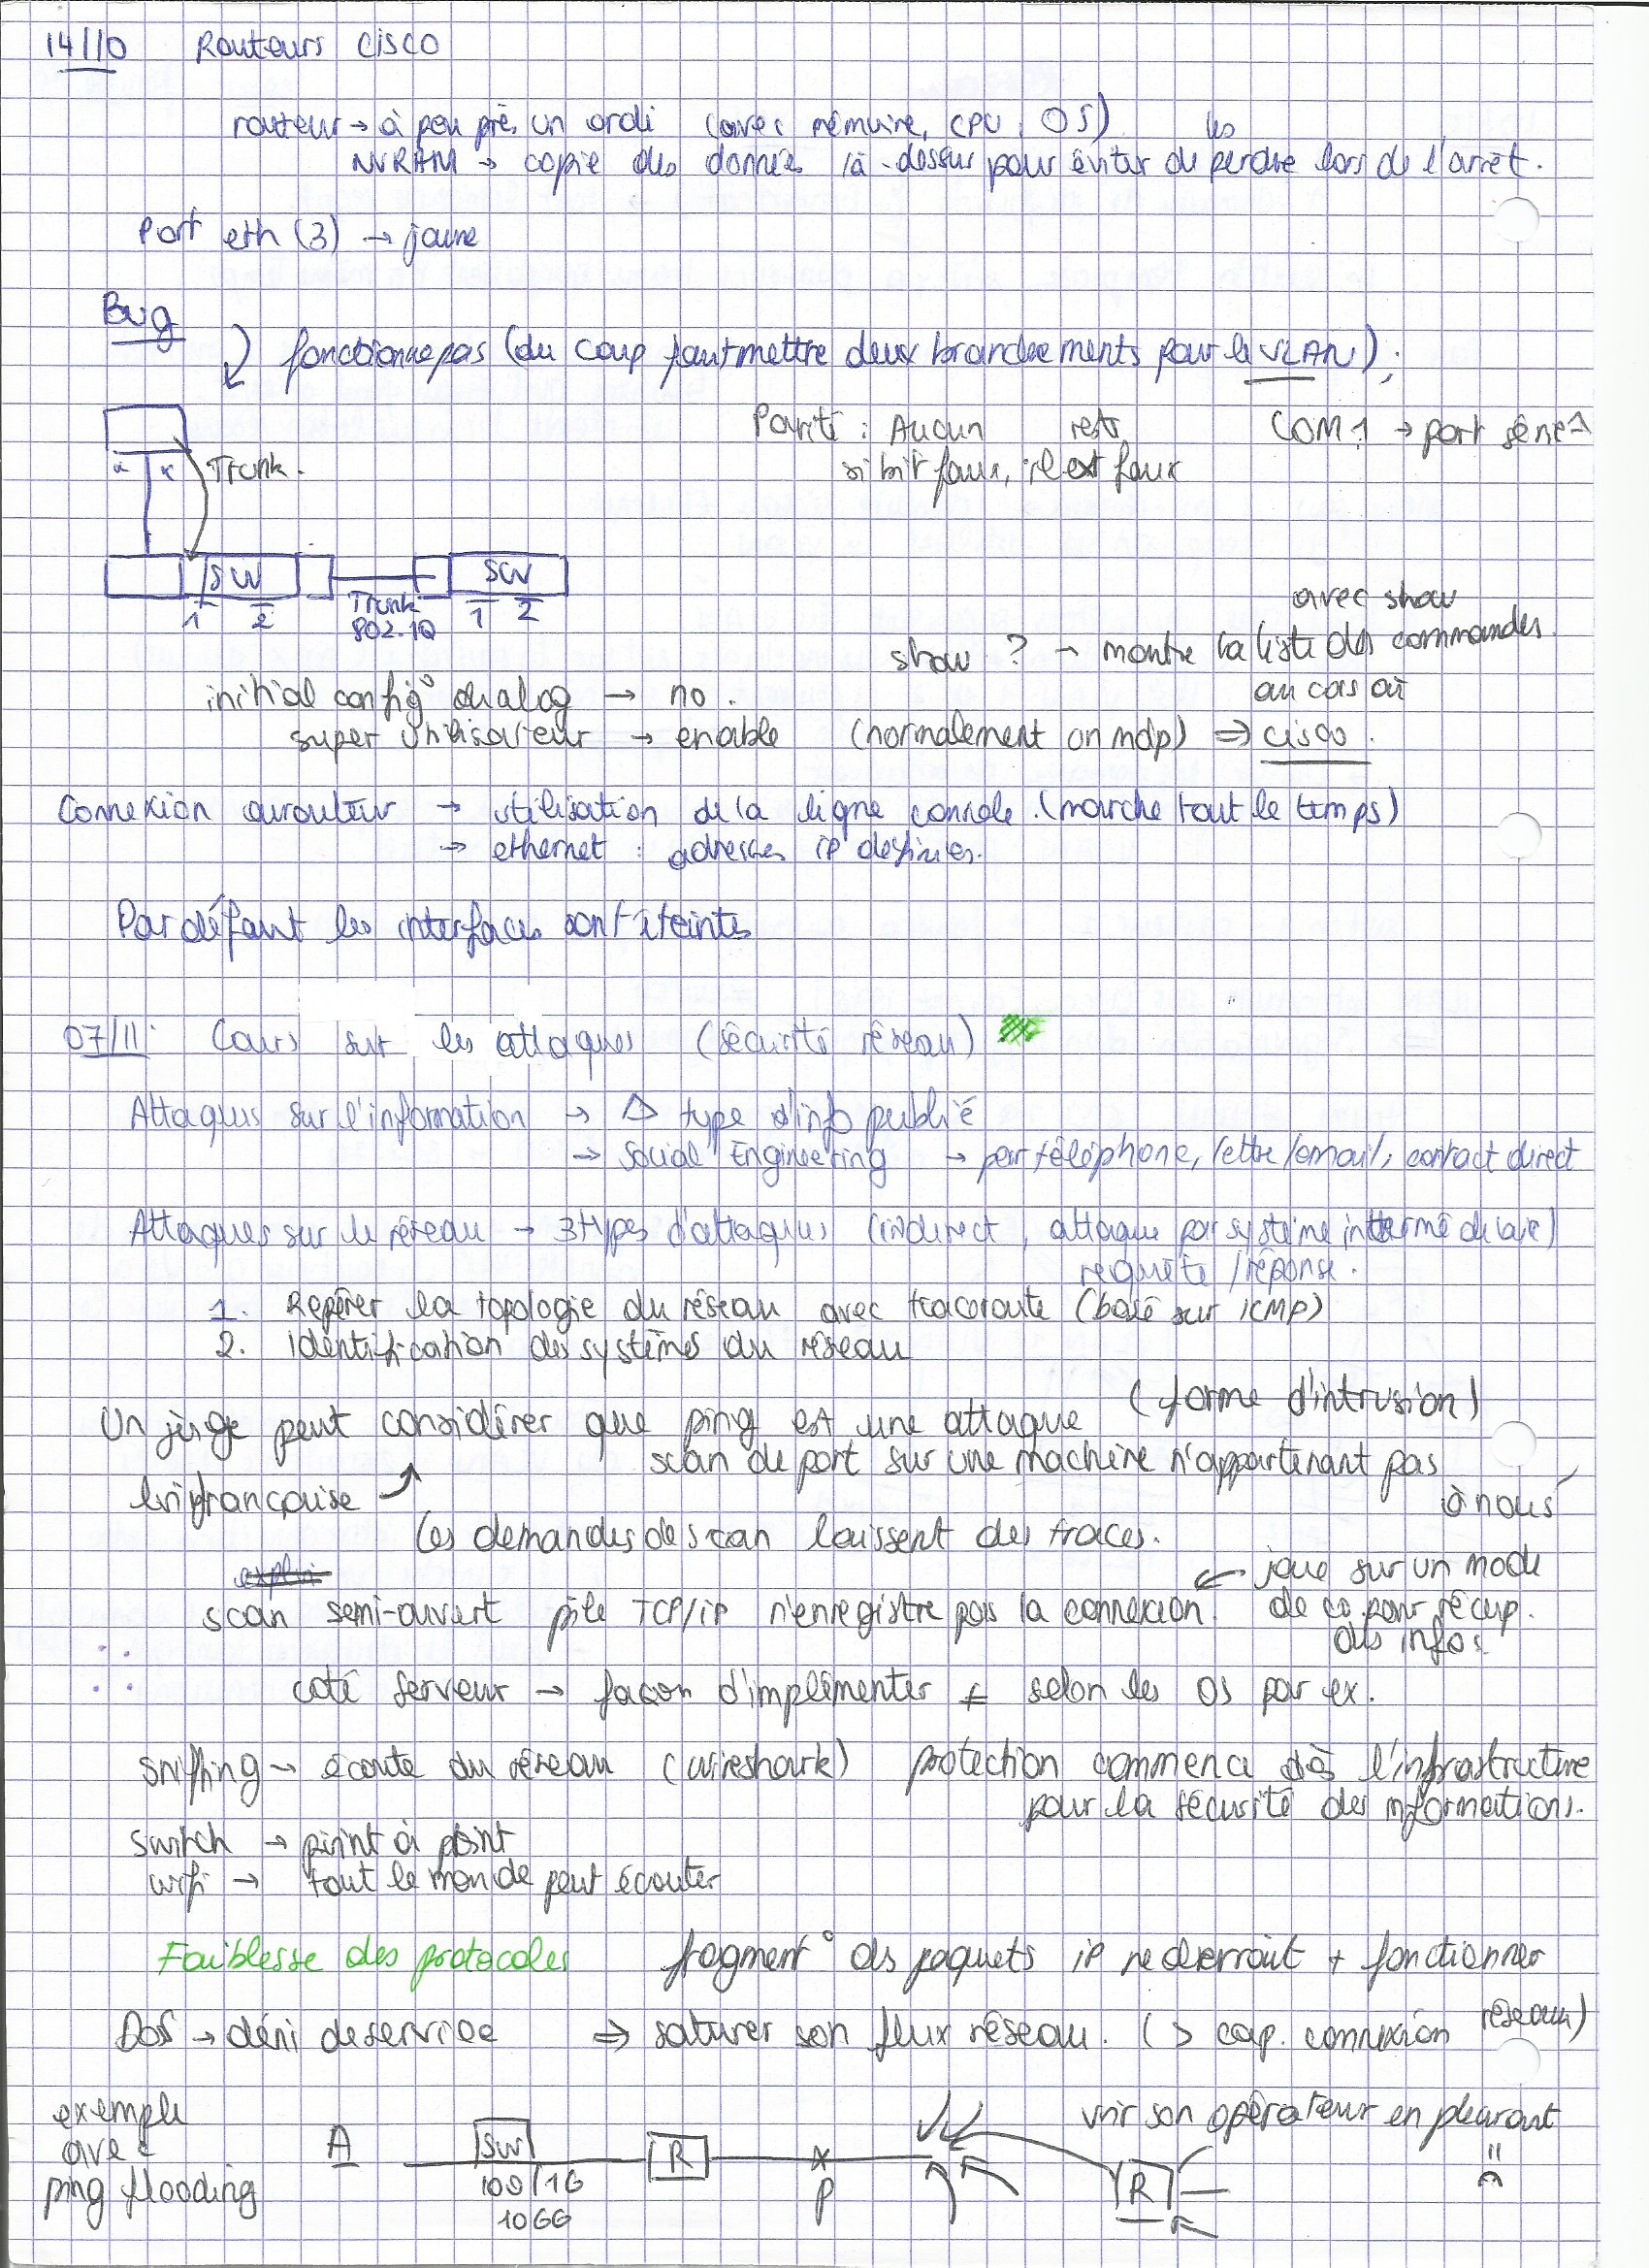 14/10 Routeurs Cisco
routeur → à peu près un ordi (avec mémoire, CPU, OS)
NVRAM → copie des données là-dessus pour éviter de les perdre lors de l'arrêt.
Port eth (3) → jaune
Bug
fonctionne pas (du coup faut mettre deux branchements pour le VLAN).
Parité : Aucun
si bit faux, il est faux
reste
COM1 → port série 1
Trunk.
SW
1 2
Trunk
802.1Q
SW
1 2
show ? → montre la liste des commandes
avec show
au cas où
initial config° dialog → no.
super utilisateur → enable (normalement on mdp) ⇒ cisco.
Connexion au routeur → utilisation de la ligne console. (marche tout le temps)
→ ethernet : adresses ip définies.
Par défaut les interfaces sont éteintes
07/11 Cours sur les attaques (sécurité réseau)
Attaques sur l'information → Δ type d'info publié
→ Social Engineering → par téléphone, lettre/email, contact direct
Attaques sur le réseau → 3 types d'attaques (indirect, attaque par système intermédiaire)
requête/réponse.
1. Repérer la topologie du réseau avec traceroute (basé sur ICMP)
2. Identification des systèmes du réseau
Un juge peut considérer que ping est une attaque (forme d'intrusion)
scan de port sur une machine n'appartenant pas
à nous
loi française
Les demandes de scan laissent des traces.
scan semi-ouvert pile TCP/IP n'enregistre pas la connexion. ← joue sur un mode
de co pour récup.
des infos.
coté serveur → façon d'implémenter ≠ selon les OS par ex.
sniffing → écoute du réseau (wireshark) protection commence dès l'infrastructure
pour la sécurité des informations.
switch → point à point
wifi → tout le monde peut écouter
Faiblesse des protocoles fragment° des paquets ip ne devrait + fonctionner
DoS → déni de service ⇒ saturer son flux réseau. (> cap. connexion réseau)
exemple
avec
ping flooding
A
SW
100/1G
10GG
R
P
R
voir son opérateur en pleurant